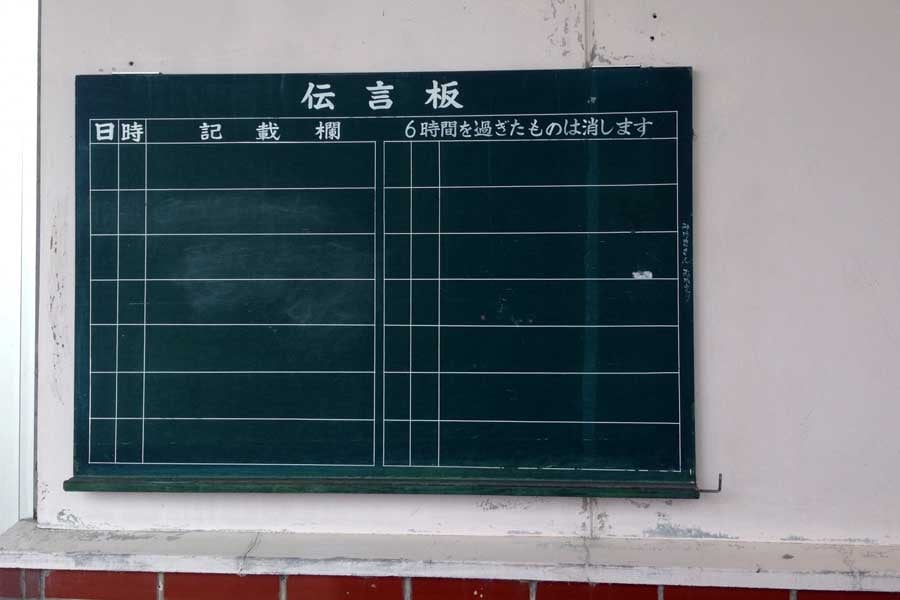 伝言板
日 時 記載欄 6時間を過ぎたものは消します